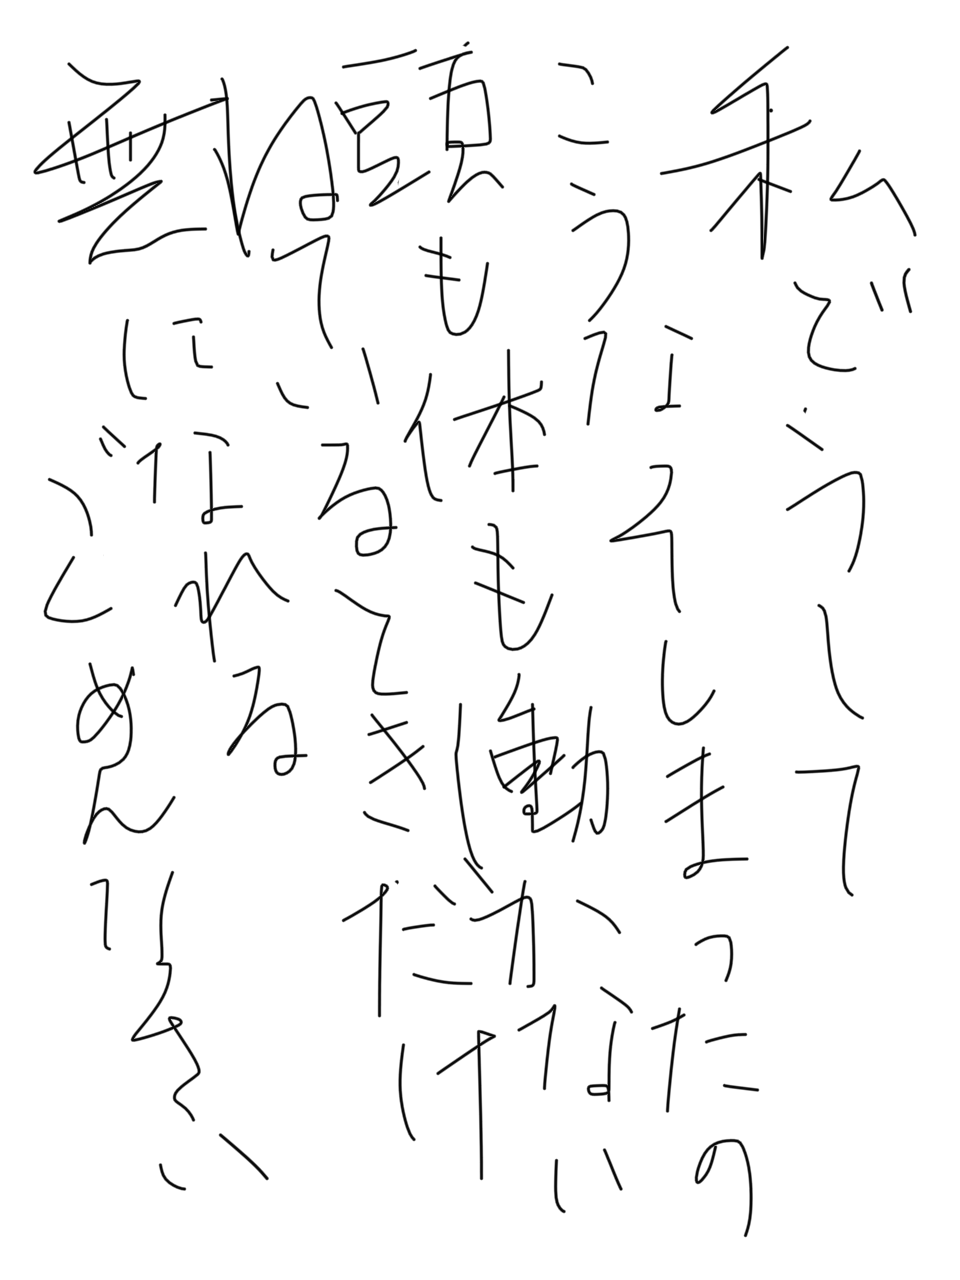 私どうして
こうなってしまったの
頭も体も動かない
ねているときだけ
無になれる
ごめんなさい